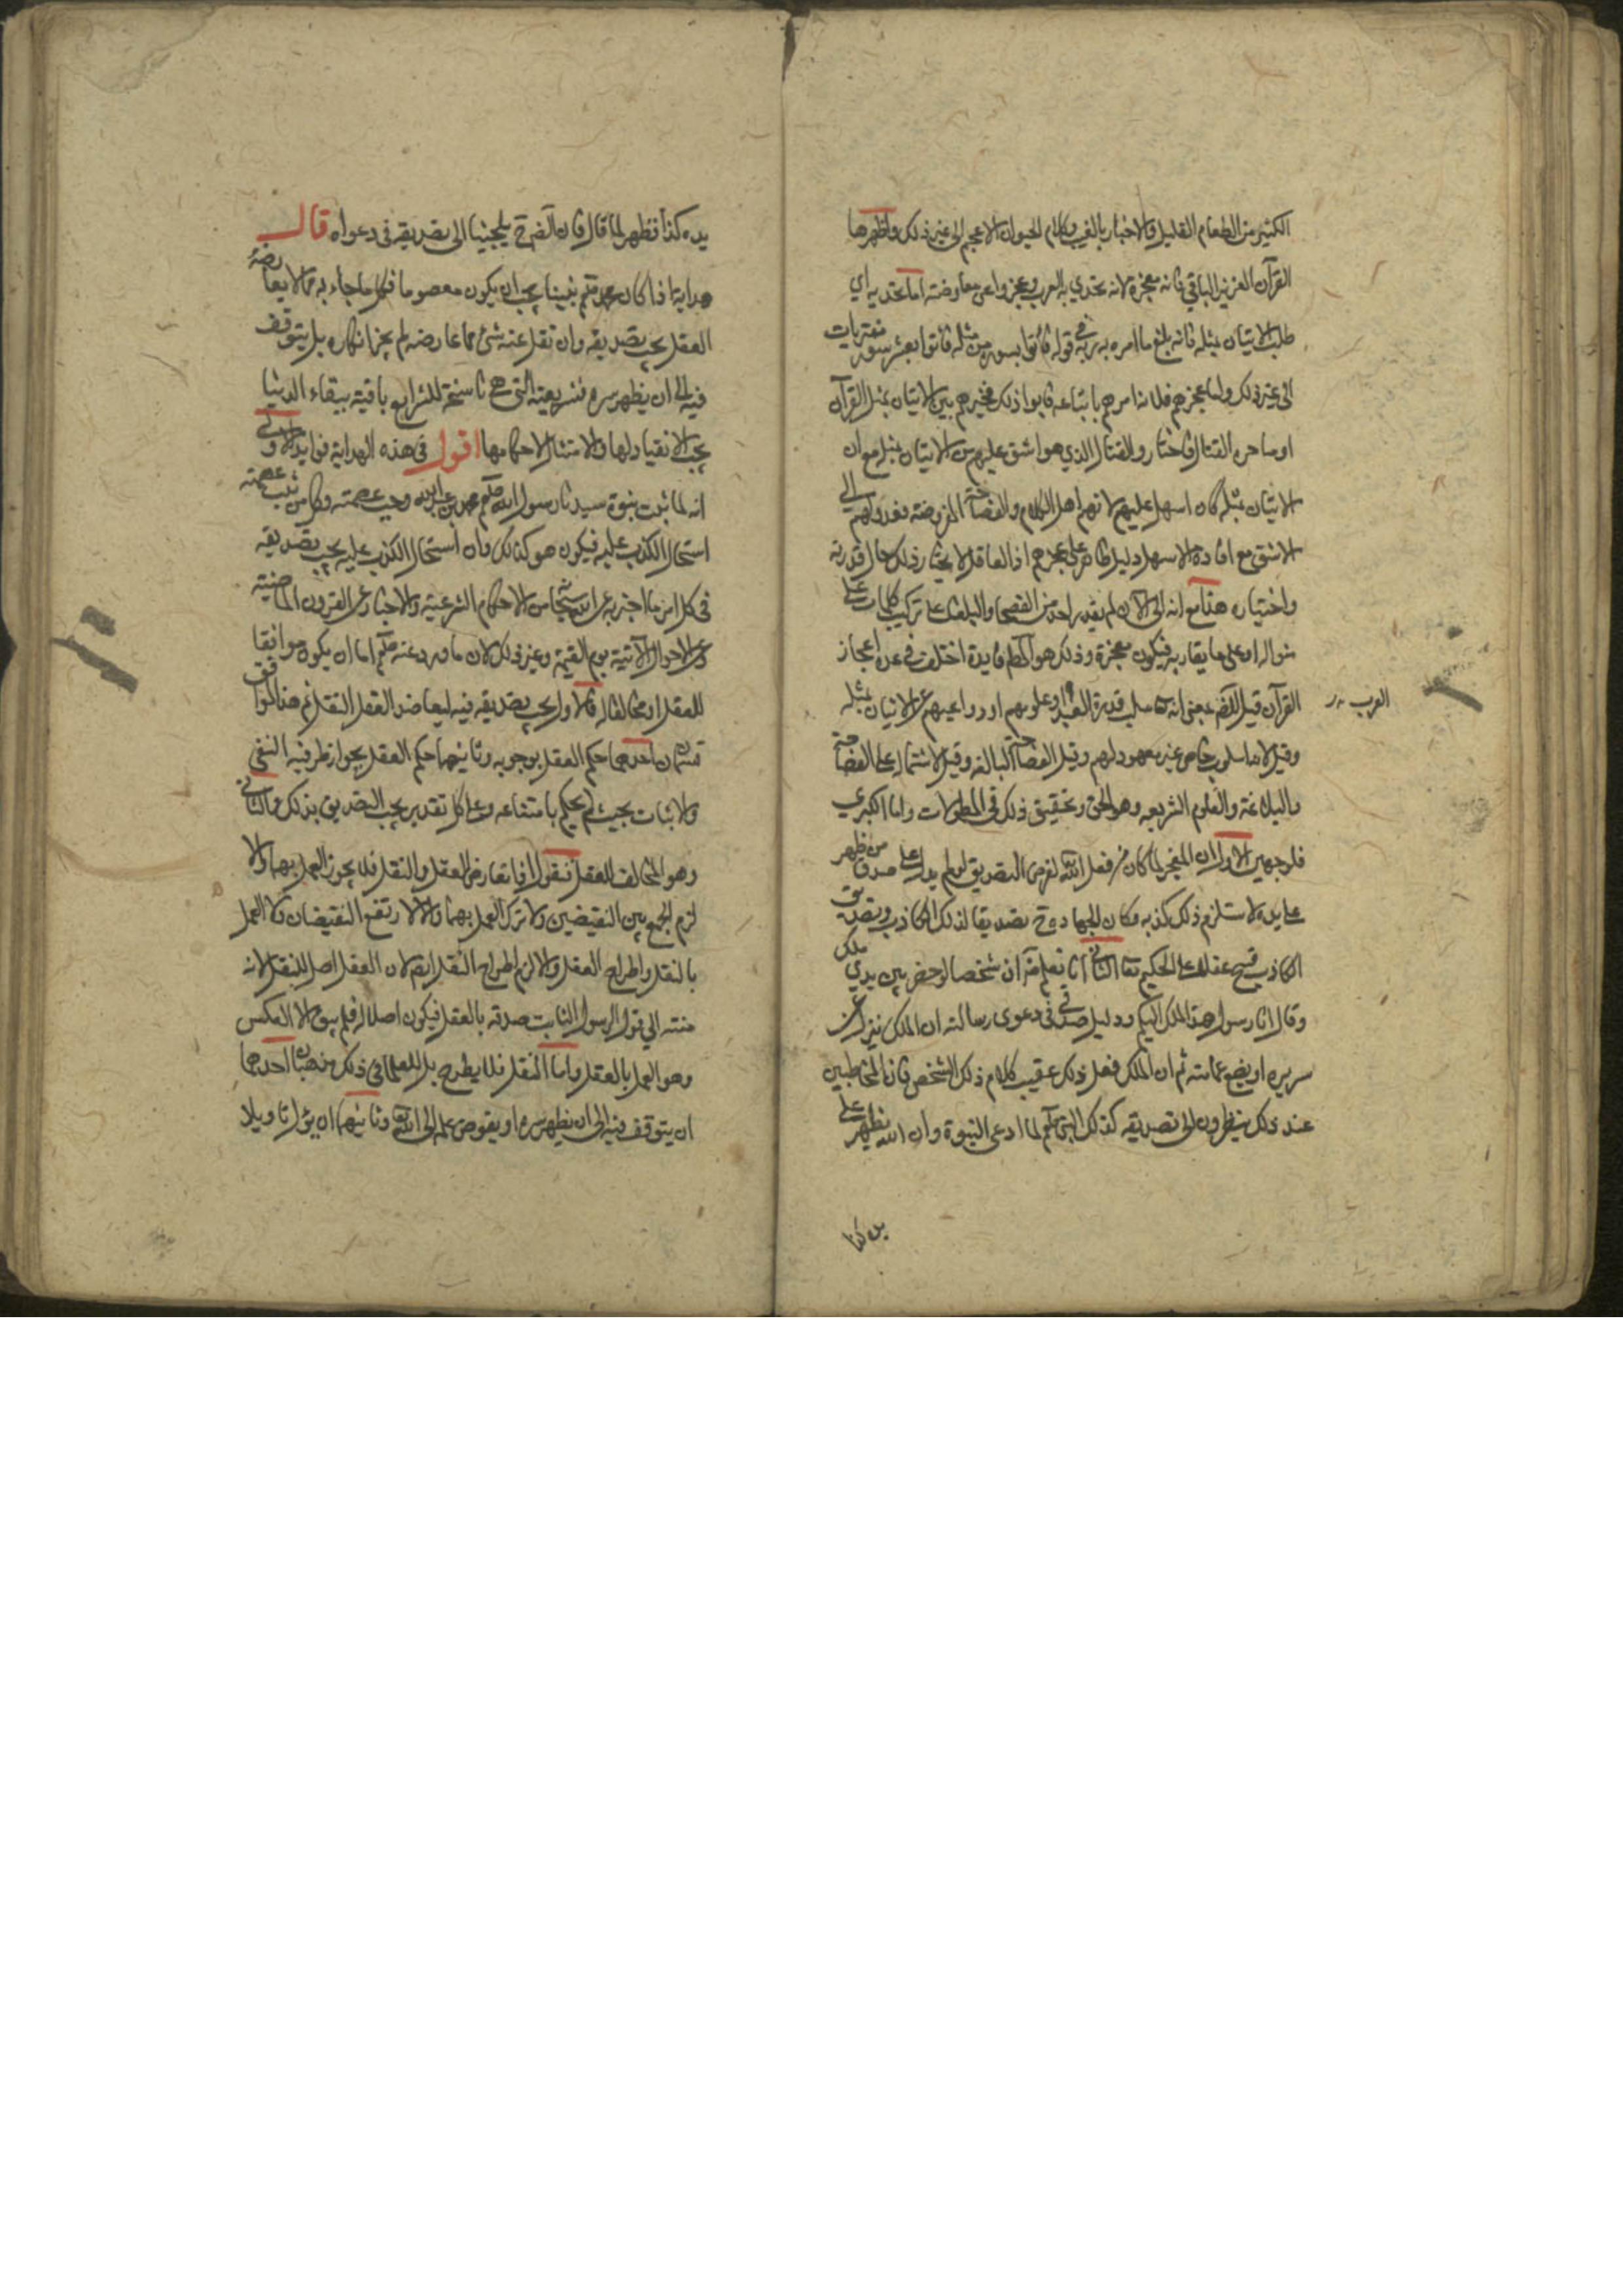 الكثير من الطعام القليل والاخبار بالغيب وكلام الحيوان الاعجم الى غير ذلك واظهرها
القرآن العزيز الباقي فانه معجزة لانه تحدي به العرب وعجزوا عن معارضته اما تحديه اي
طلب الاتيان بمثله فانه بلغ ما امره به ربه في قوله فأتوا بسورة من مثله فأتوا بعشر سور مفتريات
الى غير ذلك واما عجزهم فلانه امرهم باتباعه فابوا ذلك فخيرهم بين الاتيان بمثل القرآن
او ما حربه القتال فاختاروا القتال الذي هو اشق عليهم من الاتيان بمثله مع ان
الاتيان بمثله كان اسهل عليهم لانهم اهل الكلام والفصاحة المفروضة فعدولهم الى
الاشق مع افادة الاسهل دليل ظاهر على عجزهم اذ العاقل لا يختار ذلك حال قدرته
واختياره هذا مع انه الى الآن لم يقدر احد من الفصحا والبلغا على تركيب كلمات على
منواله او على ما يقاربه فيكون معجزة وذلك هو المطلوب فايدة اختلف في عدة اعجاز
القرآن قيل للصرفة بمعنى انه تعا سلب قدرة العرب او علومهم او دواعيهم عن الاتيان بمثله
العرب
وقيل لانه اسلوب خاص غير معهود لهم وقيل الفصاحة البالغة وقيل لاشتماله على الفصاحة
والبلاغة والعلوم الشريعه وهو الحق وتحقيق ذلك في المطولات واما الكبرى
فلوجهين الاول ان المعجز لما كان من فعل الله لغرض التصديق لو لم يدل على صدق من ظهر
على يده لاستلزم ذلك كذبه وكان ايجاده ح تصديقا لذلك الكاذب وتصديق
الكاذب قبيح عقلا على الحكيم تعا الثاني انا نعلم قرآن شخصا لو حضر بين يدي ملك
وقال انا رسول هذا الملك اليكم ودليل صدقي في دعوى رسالته ان الملك ينزل عن
سريره او يضع عمامته ثم ان الملك فعل ذلك عقيب كلام ذلك الشخص فان المخاطبين
عند ذلك يضطرون الى تصديقه كذلك النبي صلعم لما ادعى النبوة وان الله يظهر على
يده كذا
يده كذا فظهر لما قال فان الضرورة ح يلجئنا الى تصديقه في دعواه قال
هداية اذا كان محمد صلعم نبينا يجب ان يكون معصوما فكل ما جاء به مما لا يعارضه
العقل يجب تصديقه وان نقل عنه شئ مما عارضه لم يجز انكاره بل يتوقف
فيه الى ان يظهر سره فشريعته التي هي ناسخة للشرايع باقية ببقاء الدنيا
يجب الانقياد لها والامتثال لاحكامها اقول في هذه الهداية فوايد الاولى
انه لما ثبت نبوة سيدنا رسول الله صلعم محمد بن عبد الله وجب عصمته وكل من ثبت عصمته
استحال الكذب عليه فيكون هو كذلك وان استحال الكذب عليه يجب تصديقه
في كل امر ما اخبر به عن الله سبحانه من الاحكام الشرعية والاخبار عن القرون الماضية
وعن الاحوال الآتية يوم القيمة وغير ذلك لان ما ورد عنه صلعم اما ان يكون موافقا
للعقل او مخالفا له فالاول يجب تصديقه فيه ليعاضد العقل النقل ثم هذا الموافق
قسمان احدهما حكم العقل بوجوبه وثانيهما حكم العقل بجواز طرفيه النفي
والاثبات بحيث لم يحكم بامتناعه وعلى كل تقدير يجب التصديق بذلك والثاني
وهو المخالف للعقل فنقول اذا تعارض العقل والنقل فلا يجوز العمل بهما والا
لزم الجمع بين النقيضين ولا ترك العمل بهما والا لارتفع النقيضان ولا العمل
بالنقل واطراح العقل والا لزم اطراح النقل ايضا لان العقل اصل للنقل لانه
منته الى قول الرسول الثابت صدقه بالعقل فيكون اصلا له فلم يبق الا العكس
وهو العمل بالعقل واما النقل فلا يطرح بل للعلما في ذلك مذهبان احدهما
ان يتوقف فيه الى ان يظهر سره او يفوض علمه الى الله تعا وثانيهما ان يؤل تاويلا